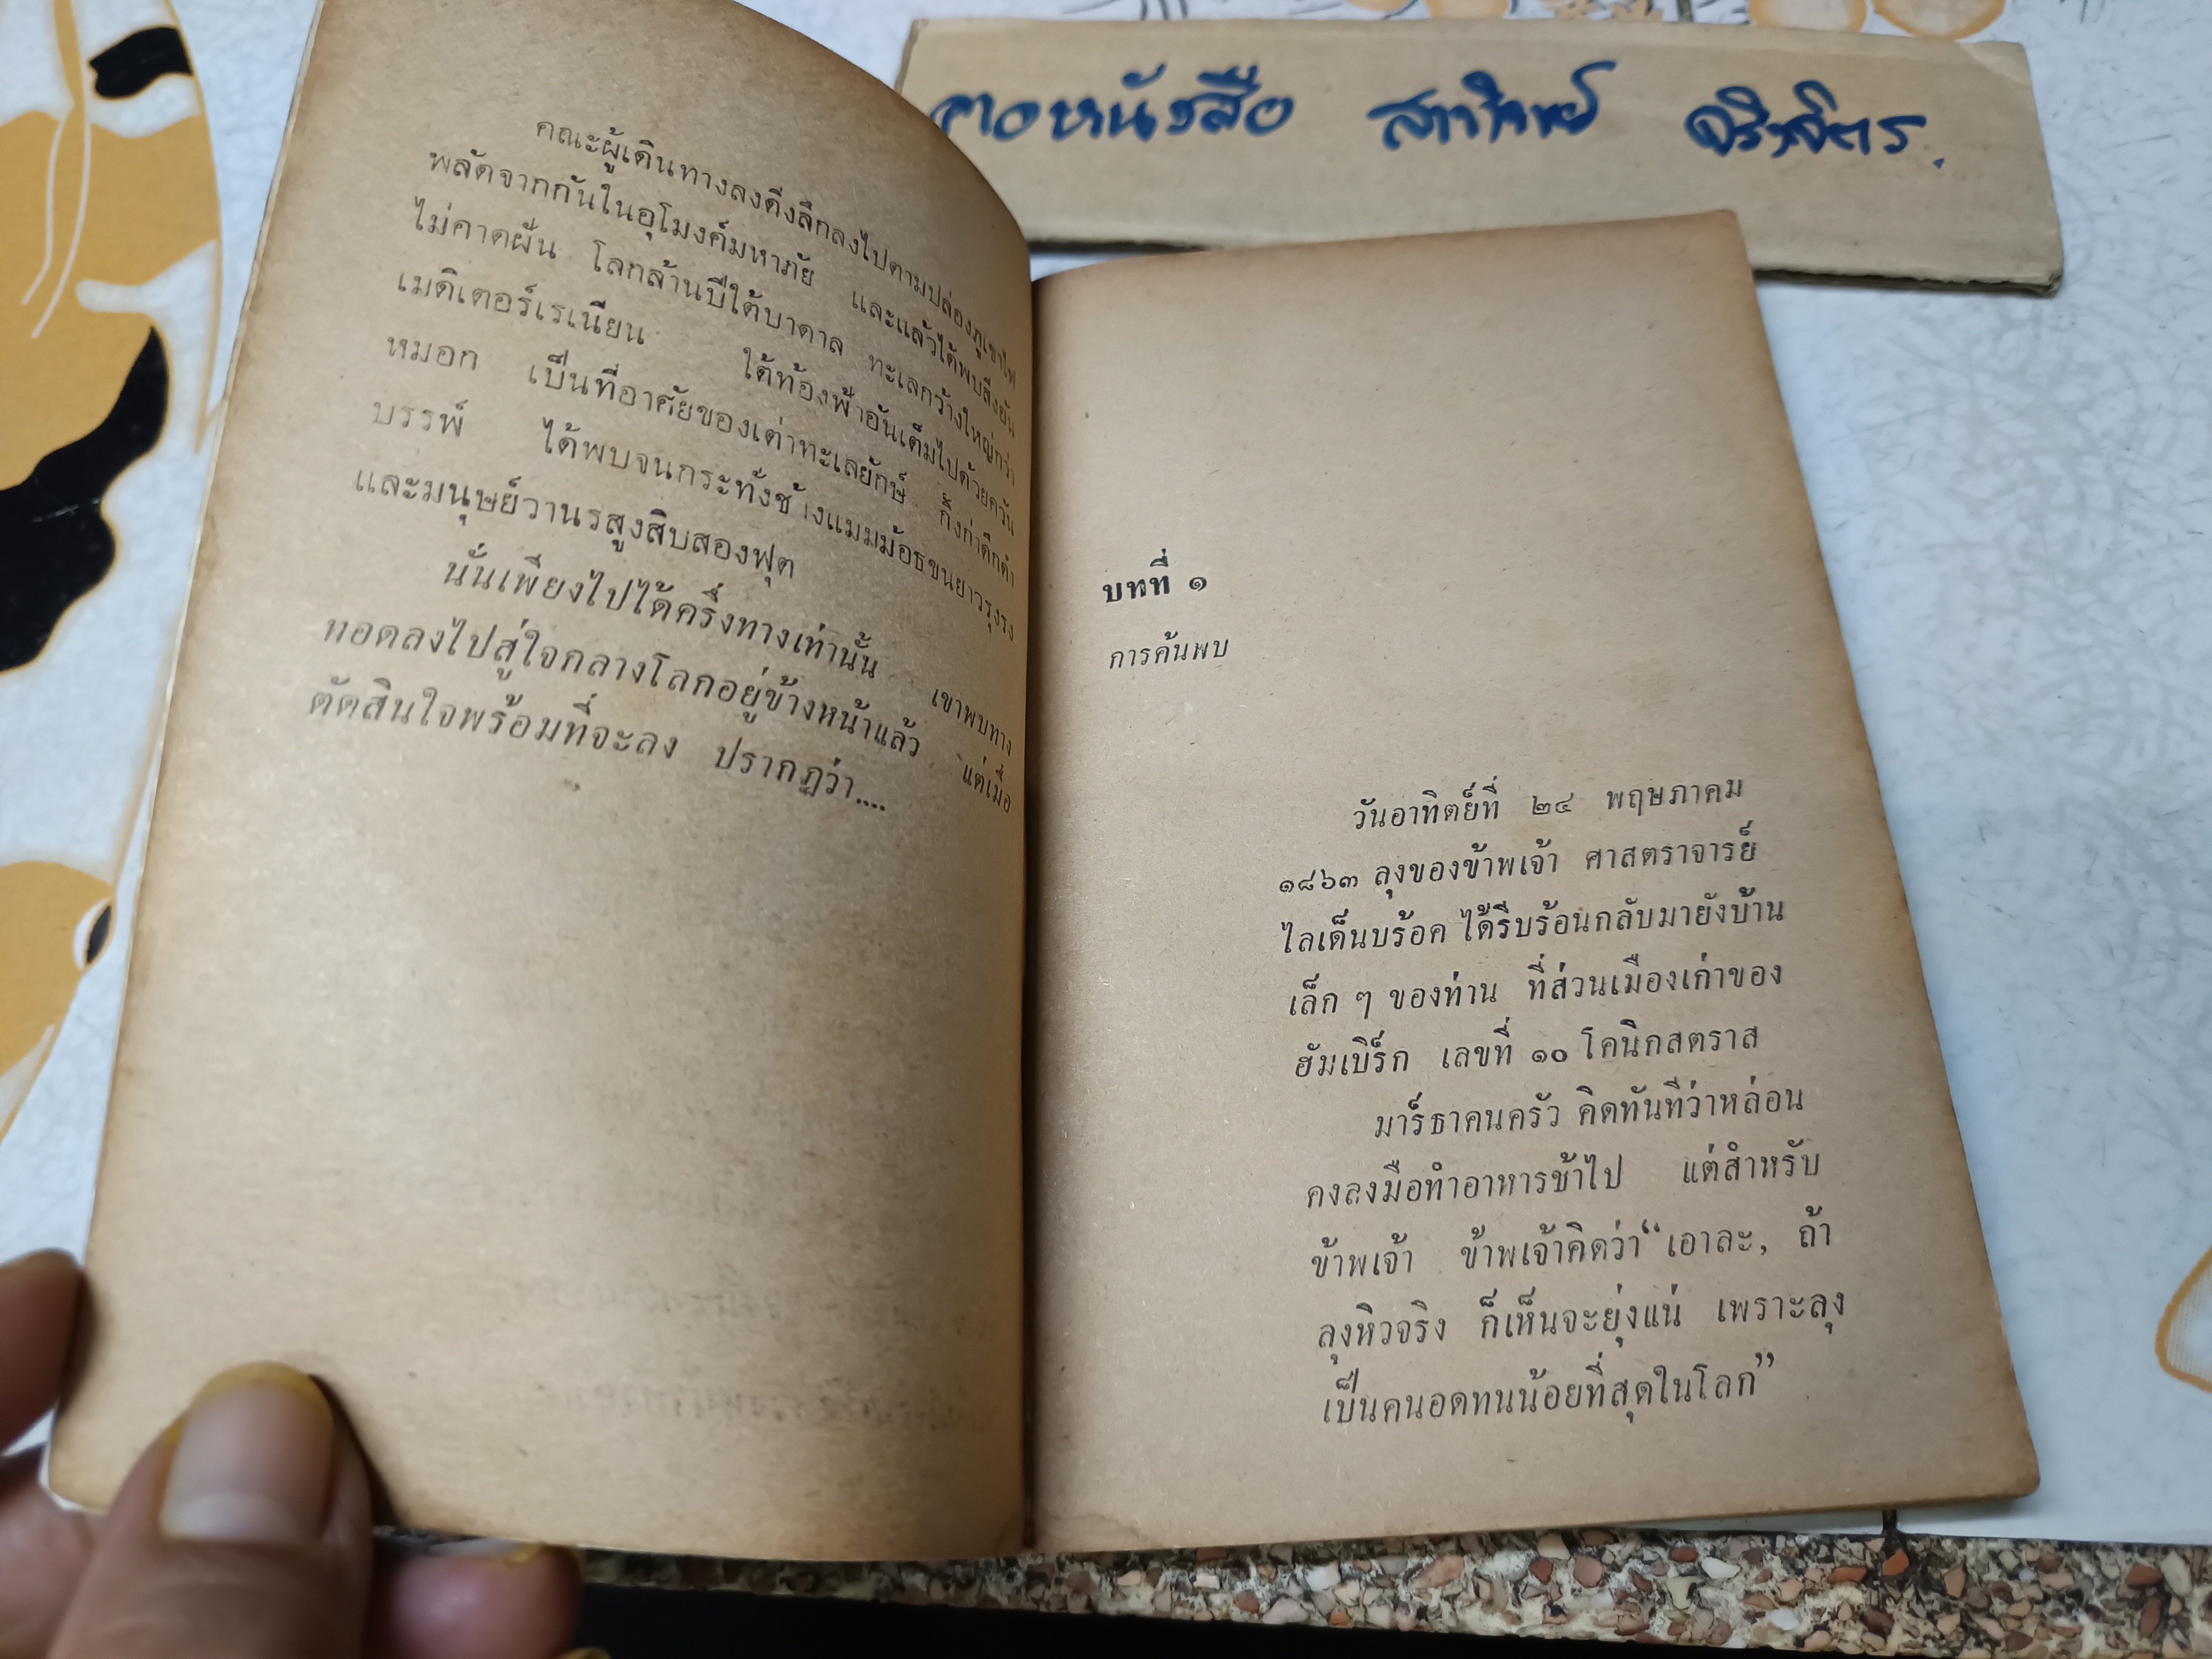 คณะผู้เดินทางลงดิ่งลึกลงไปตามปล่องภูเขาไฟ
พลัดจากกันในอุโมงค์มหาภัย และแล้วได้พบสิ่งอัน
ไม่คาดฝัน โลกล้านปีใต้บาดาล ทะเลกว้างใหญ่กว่า
เมดิเตอร์เรเนียน ใต้ท้องฟ้าอันเต็มไปด้วยควัน
หมอก เป็นที่อาศัยของเต่าทะเลยักษ์ กิ้งก่าดึกดำ
บรรพ์ ได้พบจนกระทั่งช้างแมมม้อธขนยาวรุงรง
และมนุษย์วานรสูงสิบสองฟุต
นั่นเพียงไปได้ครึ่งทางเท่านั้น เขาพบทาง
ทอดลงไปสู่ใจกลางโลกอยู่ข้างหน้าแล้ว แต่เมื่อ
ตัดสินใจพร้อมที่จะลง ปรากฏว่า....
บทที่ ๑
การค้นพบ
วันอาทิตย์ที่ ๒๔ พฤษภาคม
๑๘๖๓ ลุงของข้าพเจ้า ศาสตราจารย์
ไลเด็นบร้อค ได้รีบร้อนกลับมายังบ้าน
เล็ก ๆ ของท่าน ที่ส่วนเมืองเก่าของ
ฮัมเบิร็ก เลขที่ ๑๐ โคนิกสตราส
มาร็ธาคนครัว คิดทันทีว่าหล่อน
คงลงมือทำอาหารช้าไป แต่สำหรับ
ข้าพเจ้า ข้าพเจ้าคิดว่า “เอาละ, ถ้า
ลุงหิวจริง ก็เห็นจะยุ่งแน่ เพราะลุง
เป็นคนอดทนน้อยที่สุดในโลก”